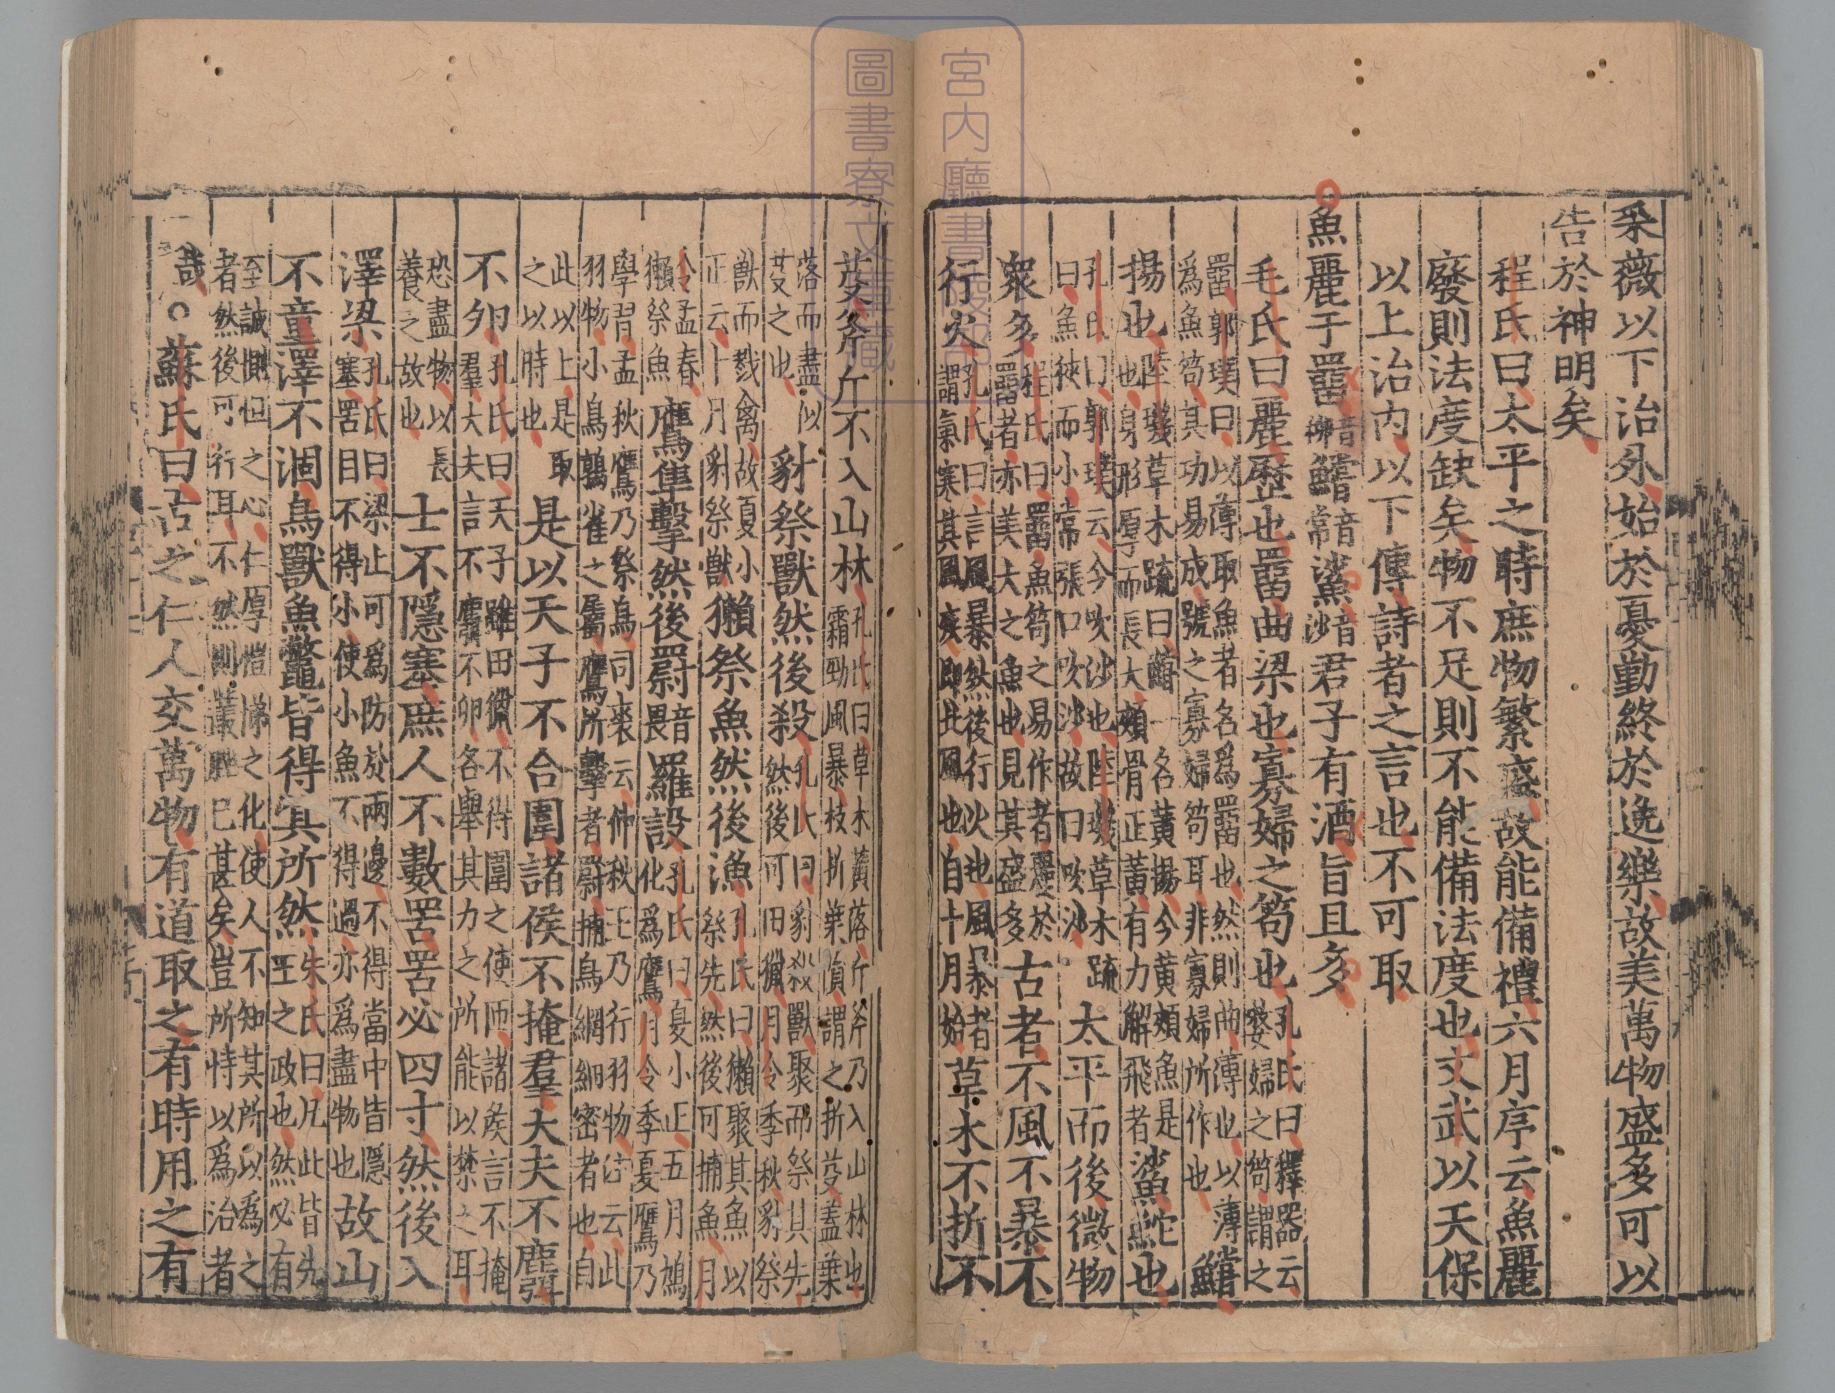 采薇以下治外始於憂勤終於逸樂故美萬物盛多可以
告於神明矣
程氏曰太平之時庶物繁盛故能備禮六月序云魚麗
廢則法度缺矣物不足則不能備法度也文武以天保
以上治内以下傳詩者之言也不可取
魚麗于罶音柳鱨音常鯊音沙君子有酒旨且多
毛氏曰麗歷也罶曲梁也寡婦之笱也孔氏曰釋器云嫠婦之笱謂之
罶郭璞曰以薄取魚者名爲罶也然則曲薄也以薄爲魚笱其功易成號之寡婦笱耳非寡婦所作也鱨
揚也陸璣草木疏曰鱨一名黃揚今黃頰魚是也身形厚而長大頰骨正黃有力解飛者鯊鮀也
孔氏曰郭璞云今吹沙也陸璣草木疏曰魚狹而小常張口吹沙故曰吹沙太平而後微物
衆多程氏曰罶魚笱之易作者麗於罶者亦美大之魚也見其盛多古者不風不暴不
行火孔氏曰言風暴然後行火也風暴者謂氣寒其風疾即北風也自十月始草木不折不
芟斧斤不入山林孔氏曰草木黃落斤斧乃入山林也霜勁風暴枝折葉隕謂之折芟蓋葉
落而盡似芟之也豺祭獸然後殺孔氏曰豺殺獸聚而祭其先然後可田獵月令季秋豺祭
獸而戮禽故夏小正云十月豺祭獸獺祭魚然後漁孔氏曰獺聚其魚以祭先然後可捕魚月
令孟春獺祭魚鷹隼擊然後罻音畏羅設孔氏曰夏小正五月鳩化爲鷹月令季夏鷹乃
學習孟秋鷹乃祭鳥司裘云仲秋王乃行羽物注云此羽物小鳥鶉雀之屬鷹所擊者罻捕鳥網細密者也自
此以上是取之以時也是以天子不合圍諸侯不掩羣大夫不麛
不夘孔氏曰天子雖田獵不得圍之使匝諸侯言不掩羣大夫言不麛不卵各舉其力之所能以禁之耳
恐盡物以長養之故也士不隱塞庶人不數罟罟必四寸然後入
澤梁孔氏曰梁止可爲防於兩邊不得當中皆隱塞罟目不得小使小魚不得過亦爲盡物也故山
不童澤不涸鳥獸魚鼈皆得其所然朱氏曰凡此皆先王之政也然必有
至誠惻怛之心仁厚愷悌之化使人不知其所以爲之者然後可行耳不然則叢脞已甚矣豈所恃以爲治者
哉○蘇氏曰古之仁人交萬物有道取之有時用之有
宮内廳書陵部
圖書寮文庫藏